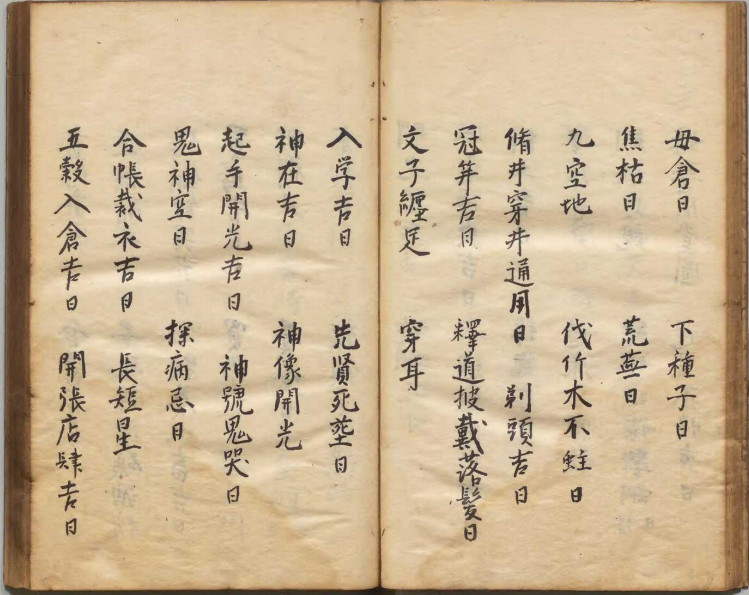 毋倉日　下種子日
焦枯日　荒蕪日
九空地　伐竹木不蛀日
脩井穿井通用日　剃頭吉日
冠笄吉日　釋道披戴落髮日
文子纏足　穿耳
入学吉日　先賢死塟日
神在吉日　神像開光
起手開光吉日　神號鬼哭日
鬼神空日　探病忌日
合帳裁衣吉日　長短星
五穀入倉吉日　開張店肆吉日